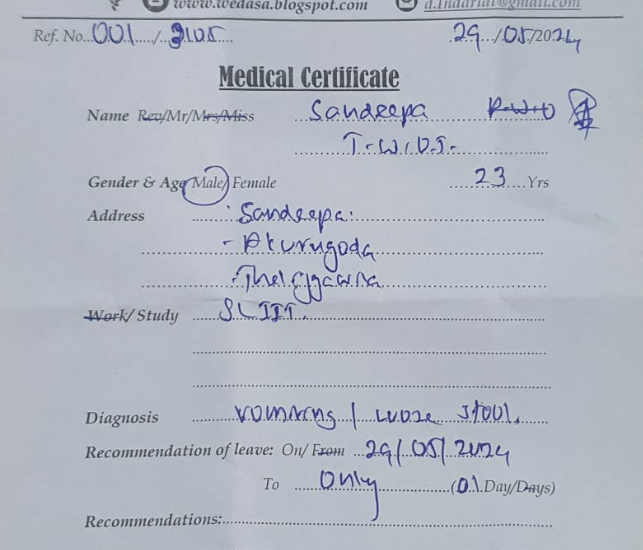 www.wedasa.blogspot.com
Ref. No. 001 / 2105 29 /05/2024
Medical Certificate
Name Rev/Mr/Mrs/Miss Sandeepa
T.W.I.D.S.
Gender & Age Male/ Female 23 Yrs
Address Sandeepa.
- Akurugoda
Work/ Study SLIIT.
Diagnosis vomiting / loose stool.
Recommendation of leave: On/ From 29/ 05/ 2024
To only (01.Day/Days)
Recommendations: